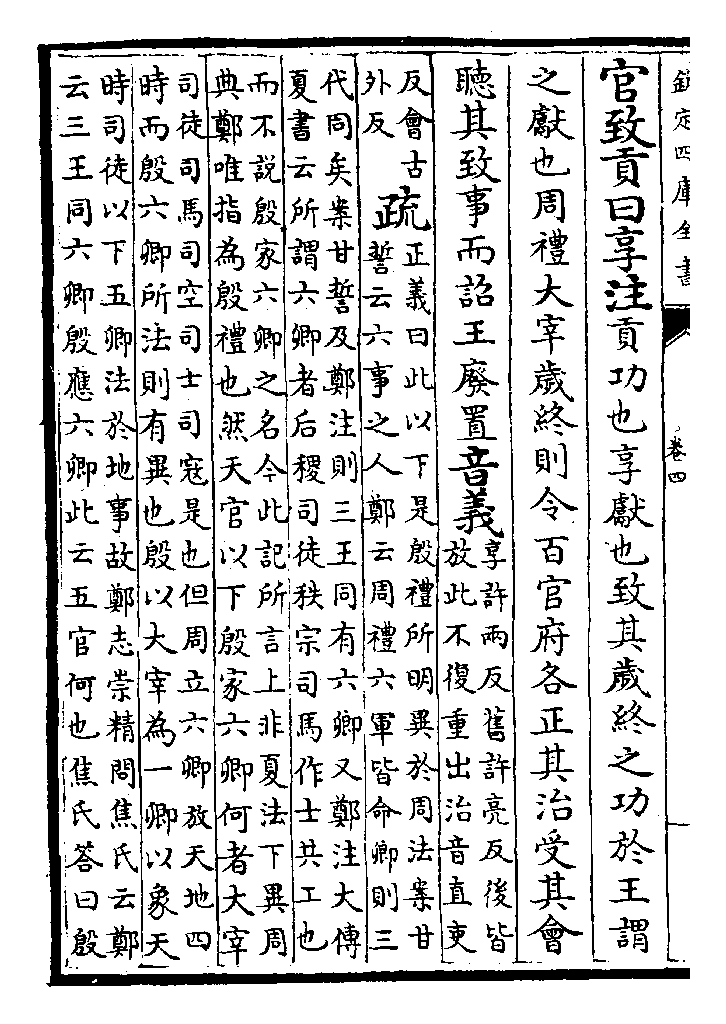 欽定四庫全書
卷四
官致貢曰享注貢功也享獻也致其歲終之功於王謂
之獻也周禮大宰歲終則令百官府各正其治受其會
聽其致事而詔王廢置音義
享許兩反舊許亮反後皆
放此不復重出治音直吏
反會古
外反
疏
正義曰此以下是殷禮所明異於周法案甘
誓云六事之人鄭云周禮六軍皆命卿則三
代同矣案甘誓及鄭注則三王同有六卿又鄭注大傳
夏書云所謂六卿者后稷司徒秩宗司馬作士共工也
而不說殷家六卿之名今此記所言上非夏法下異周
典鄭唯指為殷禮也然天官以下殷家六卿何者大宰
司徒司馬司空司士司宼是也但周立六卿放天地四
時而殷六卿所法則有異也殷以大宰為一卿以象天
時司徒以下五卿法於地事故鄭志崇精問焦氏云鄭
云三王同六卿殷應六卿此云五官何也焦氏答曰殷